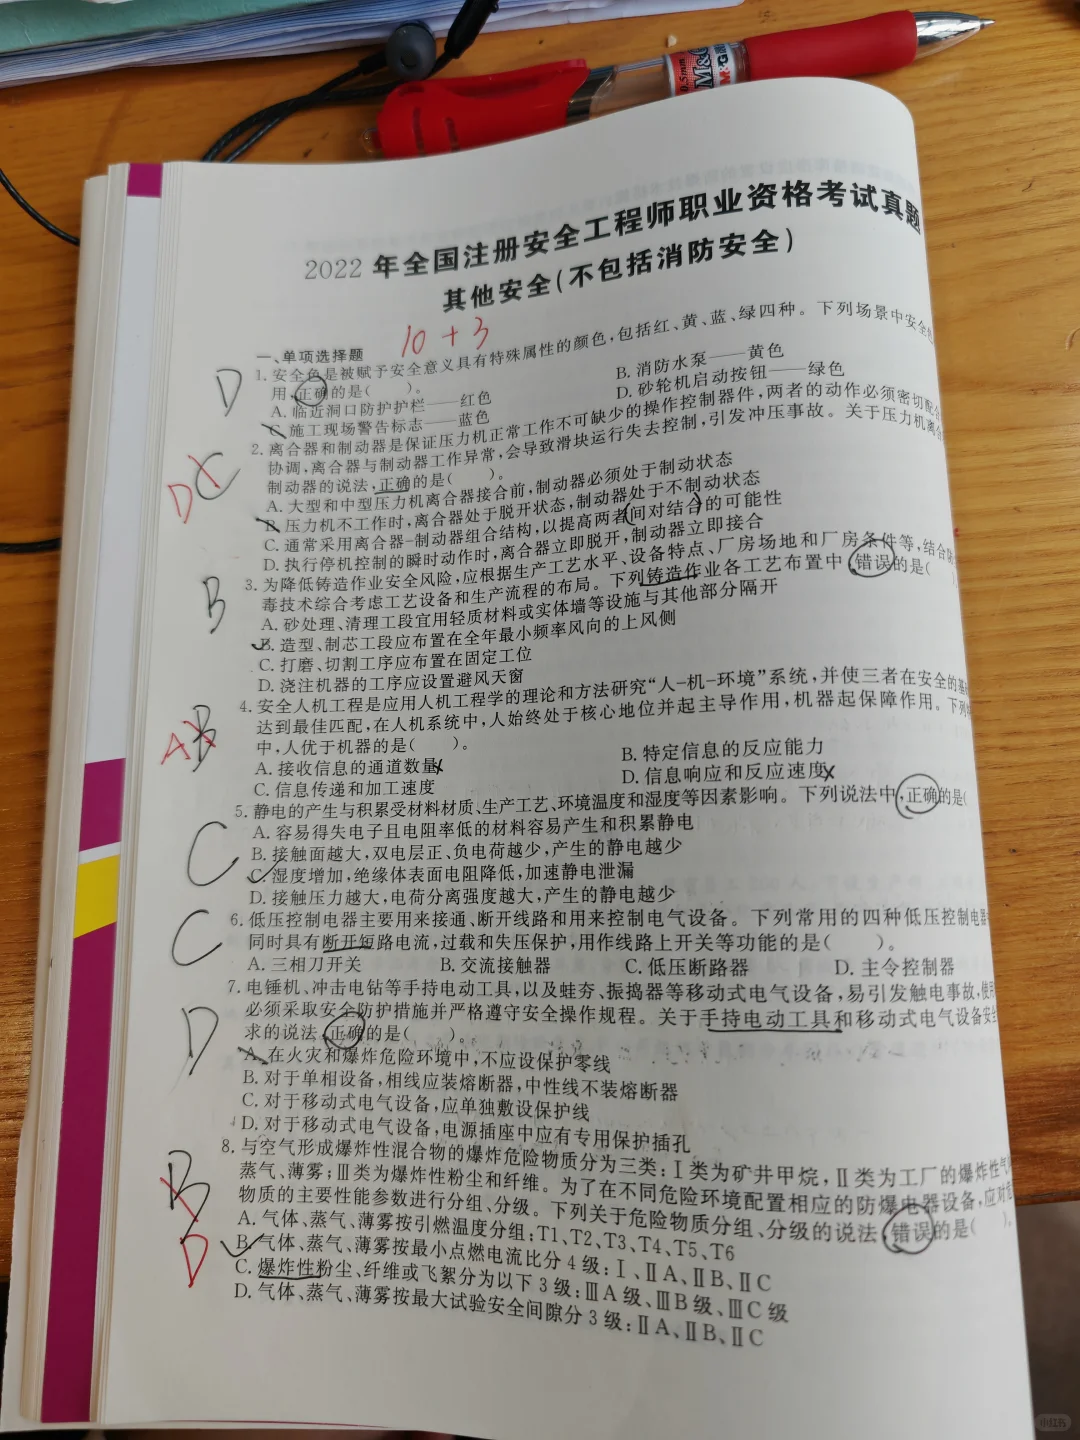 0.5mm M&G
M&G
2022年全国注册安全工程师职业资格考试真题
其他安全(不包括消防安全)
10+3
一、单项选择题
1.安全色是被赋予安全意义具有特殊属性的颜色,包括红、黄、蓝、绿四种。下列场景中安全色
用,正确的是( )。
D
A.临近洞口防护护栏——红色
B.消防水泵——黄色
C.施工现场警告标志——蓝色
D.砂轮机启动按钮——绿色
2.离合器和制动器是保证压力机正常工作不可缺少的操作控制器件,两者的动作必须密切配合
协调,离合器与制动器工作异常,会导致滑块运行失去控制,引发冲压事故。关于压力机离合
制动器的说法,正确的是( )。
C
D
A.大型和中型压力机离合器接合前,制动器必须处于制动状态
B.压力机不工作时,离合器处于脱开状态,制动器处于不制动状态
C.通常采用离合器-制动器组合结构,以提高两者同时结合的可能性
D.执行停机控制的瞬时动作时,离合器立即脱开,制动器立即接合
3.为降低铸造作业安全风险,应根据生产工艺水平、设备特点、厂房场地和厂房条件等,结合防
毒技术综合考虑工艺设备和生产流程的布局。下列铸造作业各工艺布置中,错误的是( )。
B
A.砂处理、清理工段宜用轻质材料或实体墙等设施与其他部分隔开
B.造型、制芯工段应布置在全年最小频率风向的上风侧
C.打磨、切割工序应布置在固定工位
D.浇注机器的工序应设置避风天窗
4.安全人机工程是应用人机工程学的理论和方法研究“人-机-环境”系统,并使三者在安全的基础
达到最佳匹配,在人机系统中,人始终处于核心地位并起主导作用,机器起保障作用。下列
中,人优于机器的是( )。
A B
A.接收信息的通道数量
B.特定信息的反应能力
C.信息传递和加工速度
D.信息响应和反应速度
5.静电的产生与积累受材料材质、生产工艺、环境温度和湿度等因素影响。下列说法中,正确的是(
C
A.容易得失电子且电阻率低的材料容易产生和积累静电
B.接触面越大,双电层正、负电荷越少,产生的静电越少
C.湿度增加,绝缘体表面电阻降低,加速静电泄漏
D.接触压力越大,电荷分离强度越大,产生的静电越少
6.低压控制电器主要用来接通、断开线路和用来控制电气设备。下列常用的四种低压控制电器
同时具有断开短路电流,过载和失压保护,用作线路上开关等功能的是( )。
C
A.三相刀开关 B.交流接触器 C.低压断路器 D.主令控制器
7.电锤机、冲击电钻等手持电动工具,以及蛙夯、振捣器等移动式电气设备,易引发触电事故,使用
必须采取安全防护措施并严格遵守安全操作规程。关于手持电动工具和移动式电气设备安全
求的说法,正确的是( )。
D
A.在火灾和爆炸危险环境中,不应设保护零线
B.对于单相设备,相线应装熔断器,中性线不装熔断器
C.对于移动式电气设备,应单独敷设保护线
D.对于移动式电气设备,电源插座中应有专用保护插孔
8.与空气形成爆炸性混合物的爆炸危险物质分为三类:Ⅰ类为矿井甲烷,Ⅱ类为工厂的爆炸性气
蒸气、薄雾;Ⅲ类为爆炸性粉尘和纤维。为了在不同危险环境配置相应的防爆电器设备,应对危
物质的主要性能参数进行分组、分级。下列关于危险物质分组、分级的说法,错误的是( )。
B
D
A.气体、蒸气、薄雾按引燃温度分组:T1、T2、T3、T4、T5、T6
B.气体、蒸气、薄雾按最小点燃电流比分4级:Ⅰ、ⅡA、ⅡB、ⅡC
C.爆炸性粉尘、纤维或飞絮分为以下3级:ⅢA级、ⅢB级、ⅢC级
D.气体、蒸气、薄雾按最大试验安全间隙分3级:ⅡA、ⅡB、ⅡC
小红书